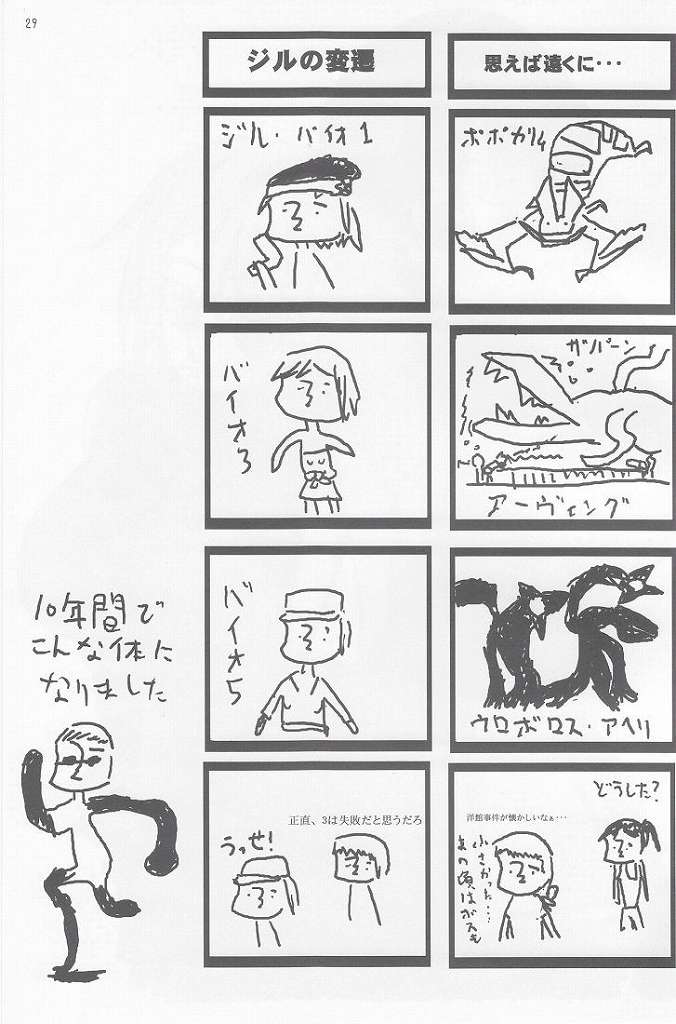 29
思えば遠くに・・・
ポポカリム
ザパーン
アーヴィング
ウロボロス・アヘリ
どうした?
洋館事件が懐かしいなぁ・・・
あの頃はボスも
小さかった…
ジルの変遷
ジル・バイオ1
バイオ3
バイオ5
正直、3は失敗だと思うだろ
うっせ!
10年間で
こんな体に
なりました